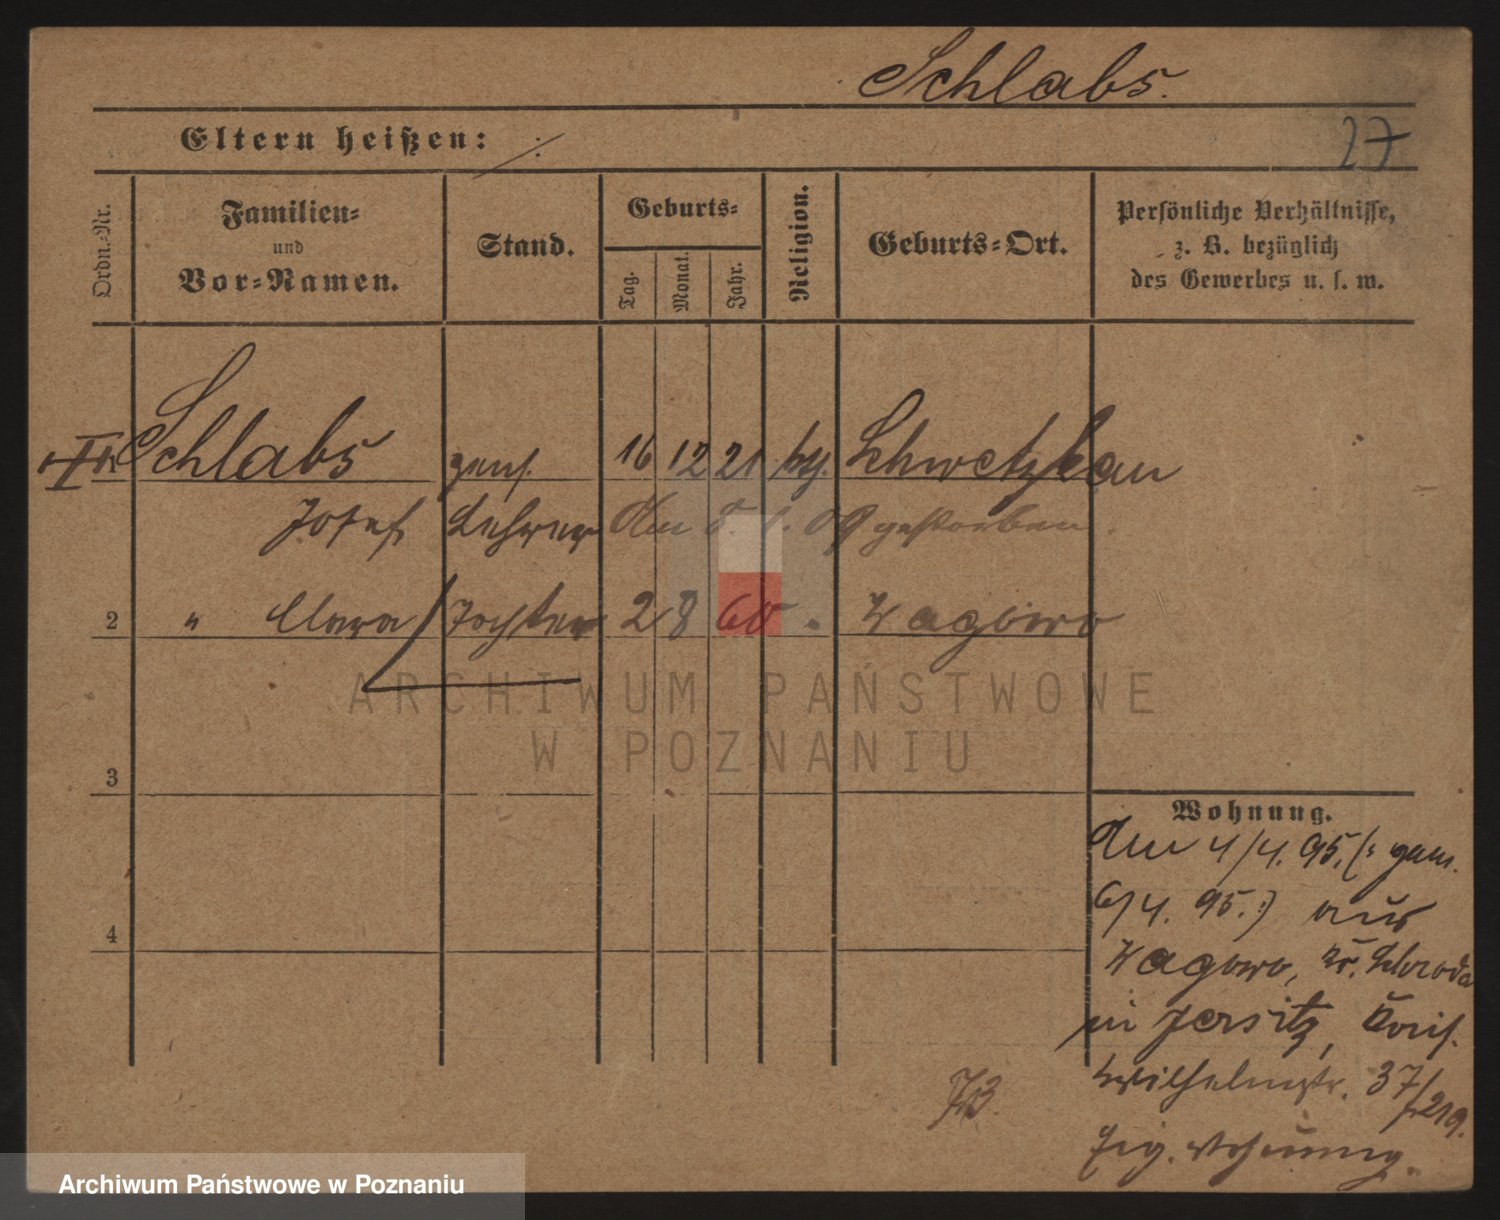 Schlabs.
Eltern heißen: ./.
27
Ordn.-Nr.
Familien-
und
Vor-Namen.
Stand.
Geburts-
Tag.
Monat.
Jahr.
Religion.
Geburts-Ort.
Persönliche Verhältnisse,
z. B. bezüglich
des Gewerbes u. s. w.
Schlabs pens. 16 12 21 Schwetzkau
Josef Lehrer Am 09 gestorben.
2 " Clara Tochter 2 8 60 " Wagowo
3
4
Wohnung.
Am 4/4. 95. (: gem.
6/4. 95. :) aus
Wagowo, Kr. Schroda
in Jersitz,
Wilhelmstr. 37
Eig. Wohnung.
ARCHIWUM PAŃSTWOWE
W POZNANIU
Archiwum Państwowe w Poznaniu